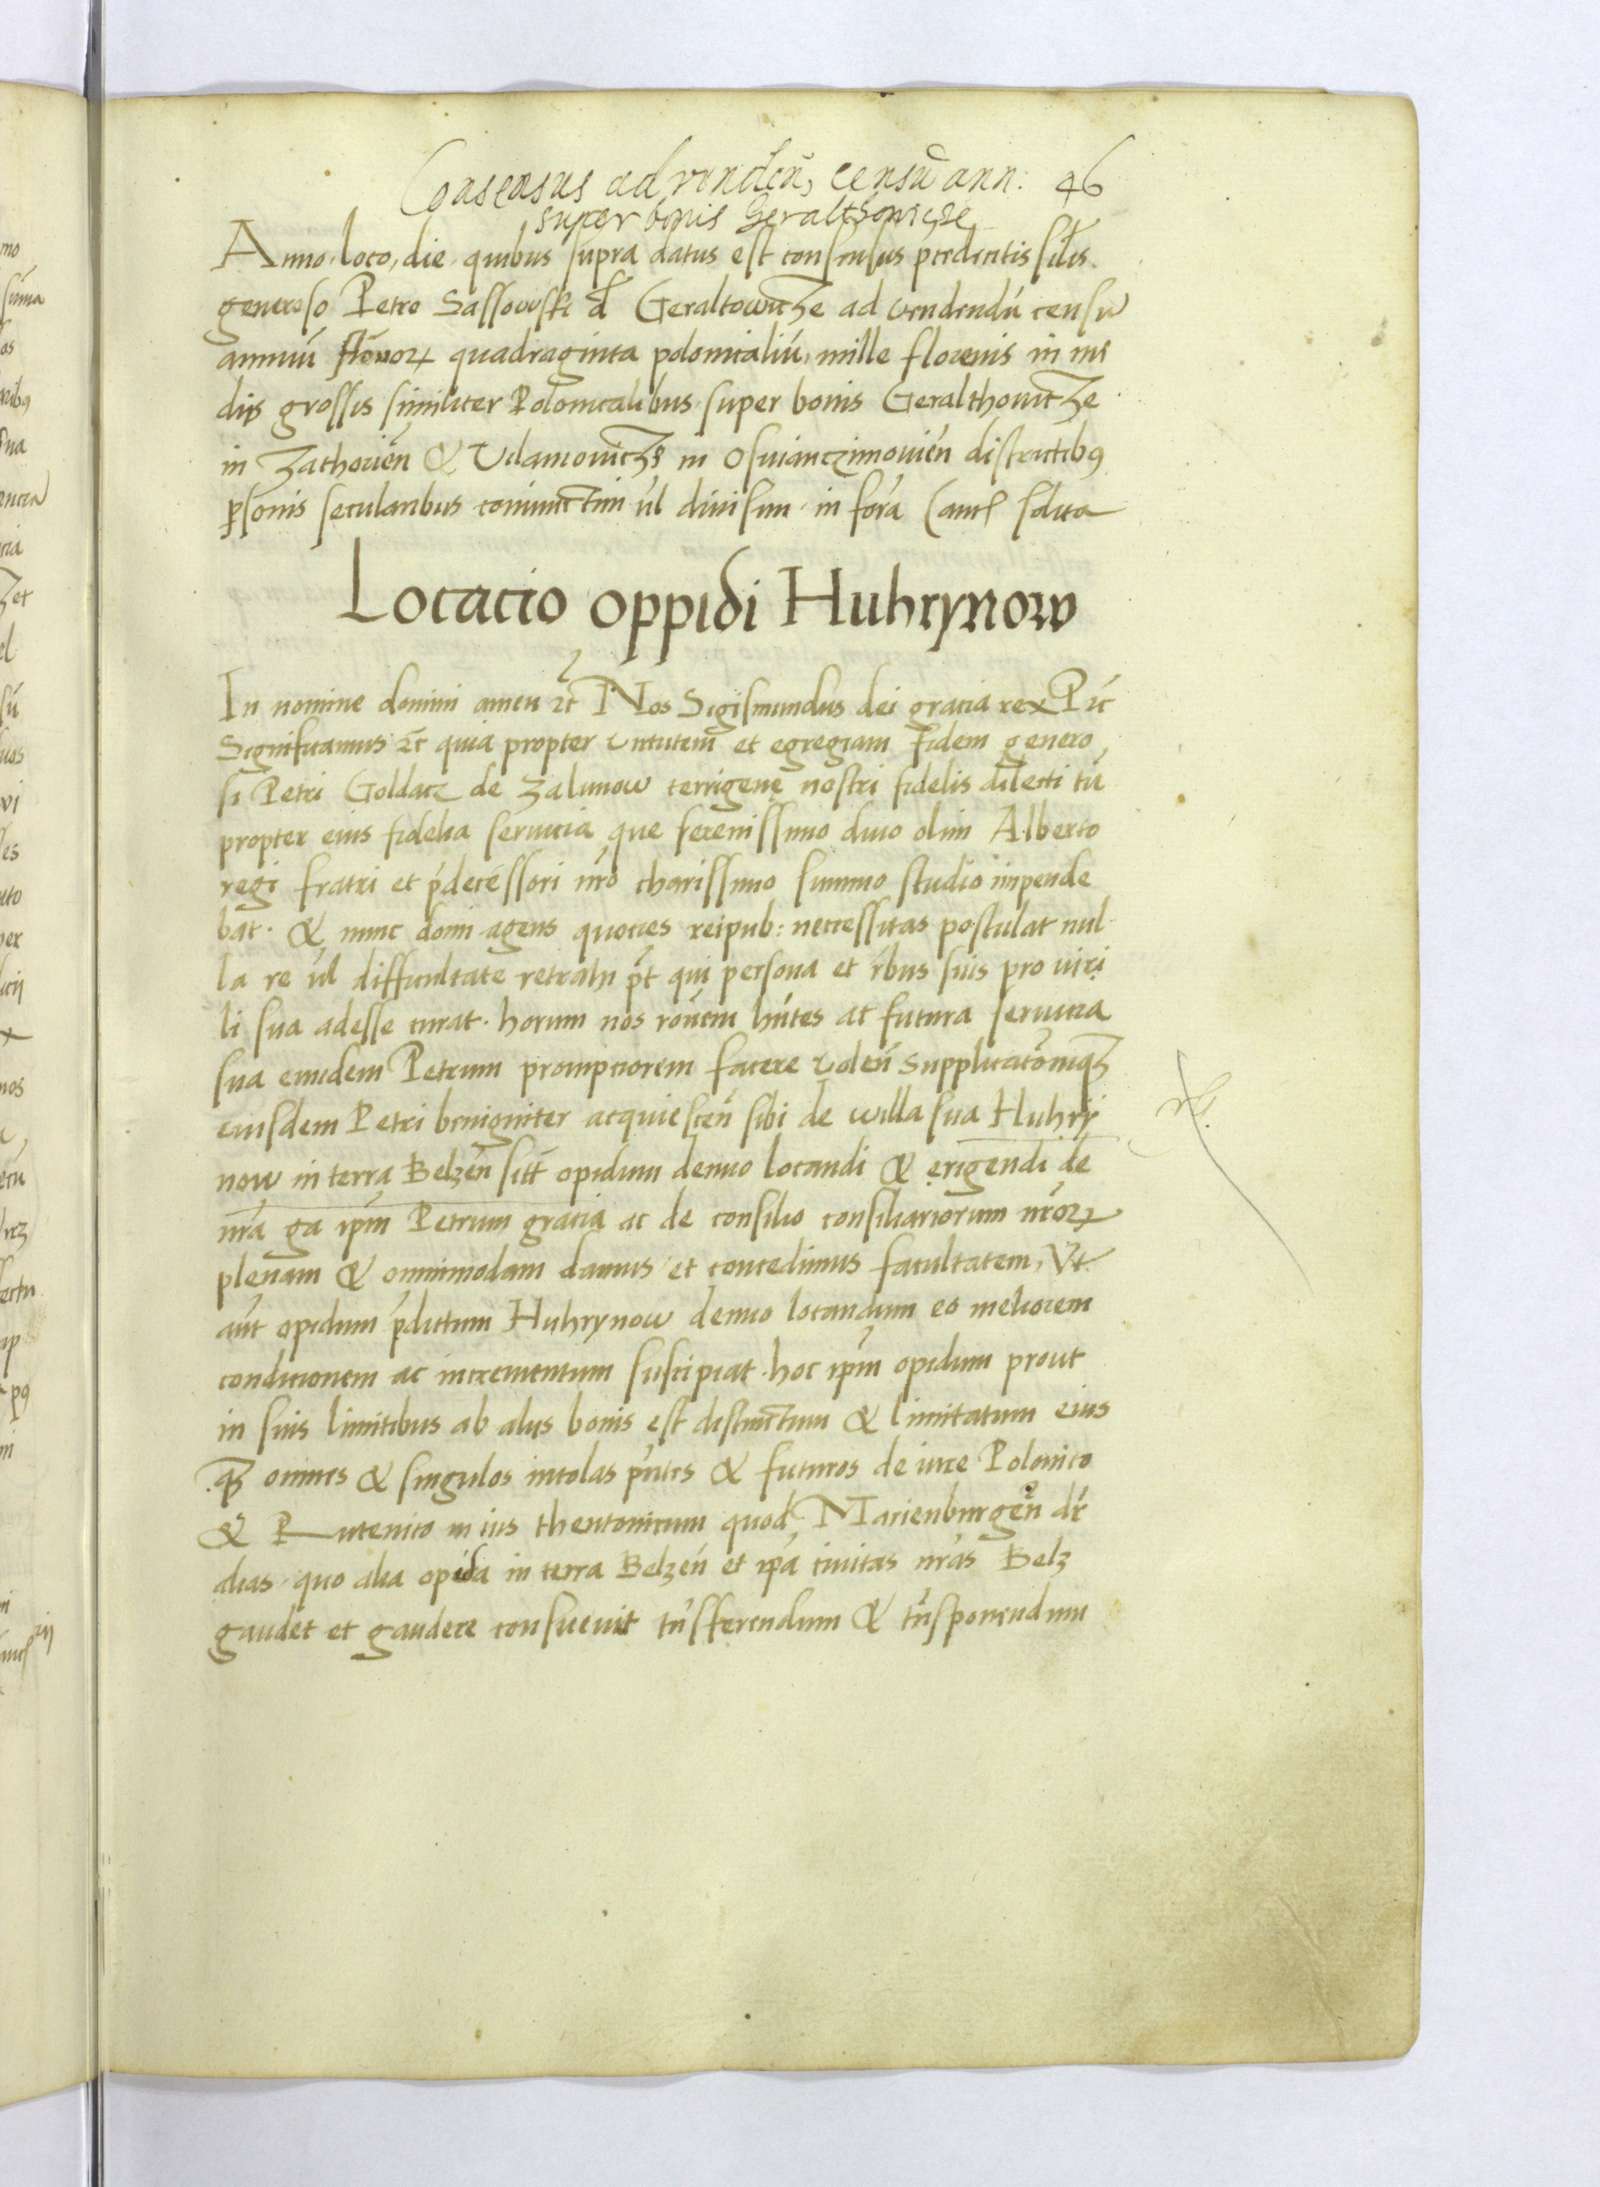 Consensus ad vendēn, censū ann: 46
super bonis Geralthowicze
Anno, loco, die quibus supra datus est consensus precedentis silis.
generoso Petro Sassowski d Geraltowicze ad vendendū censū
annuū florenor quadraginta polonicaliū, mille florenis in me
diis grossis similiter Polonicalibus super bonis Geralthovicze
in Zathorien̄ & Vdamovicze in Osvianczimovien̄ districtibꝯ
ꝑsonis secularibus coniunctim vl divisim in fora (anc sdita
Locacio oppidi Huhrynow
In nomine domini amen ꝛc Nos Sigismundus dei gracia rex Pc
Significamus ꝛc quia propter virtutem et egregiam fidem genero
si Petri Goldacz de Zalunow terrigenę nostri fidelis dilecti tū
propter eius fidelia servicia que serenissimo divo olim Alberto
regi fratri et p̄decessori n̄ro charissimo summo studio impende
bat. & nunc domi agens quocies reipub: necessitas postulat nul
la re vl difficultate retrahi pt qui persona et r̄bus suis pro viri
li sua adesse curat. horum nos rōnem hn̄tes ac futura servicia
sua eundem Petrum promptiorem facere volen̄ Supplicatōniqꝫ
eiusdem Petri benigniter acquiescen̄ sibi de willa sua Huhry
now in terra Belzen̄ sitt opidum denuo locandi & erigendi de
nr̄a ga ipm̄ Petrum gracia ac de consilio consiliariorum nr̄oꝝ
plenam & omnimodam damus et concedimus facultatem, Vt
aūt opidum p̄dictum Huhrynow denuo locandum eo meliorem
condicionem ac incrementum suscipiat. hoc ipm̄ opidum prout
in suis limitibus ab aliis bonis est distinctum & limitatum eius
qꝫ omnes & singulos incolas p̄ntes & futuros de iure Polonico
& Rutenico in ius theutonicum quod Marienburgen̄ dr̄
alias quo alia opida in terra Belzen̄ et ipa civitas nr̄as Belz
gaudet et gaudere consuevit tn̄sferendum & tn̄sponendum